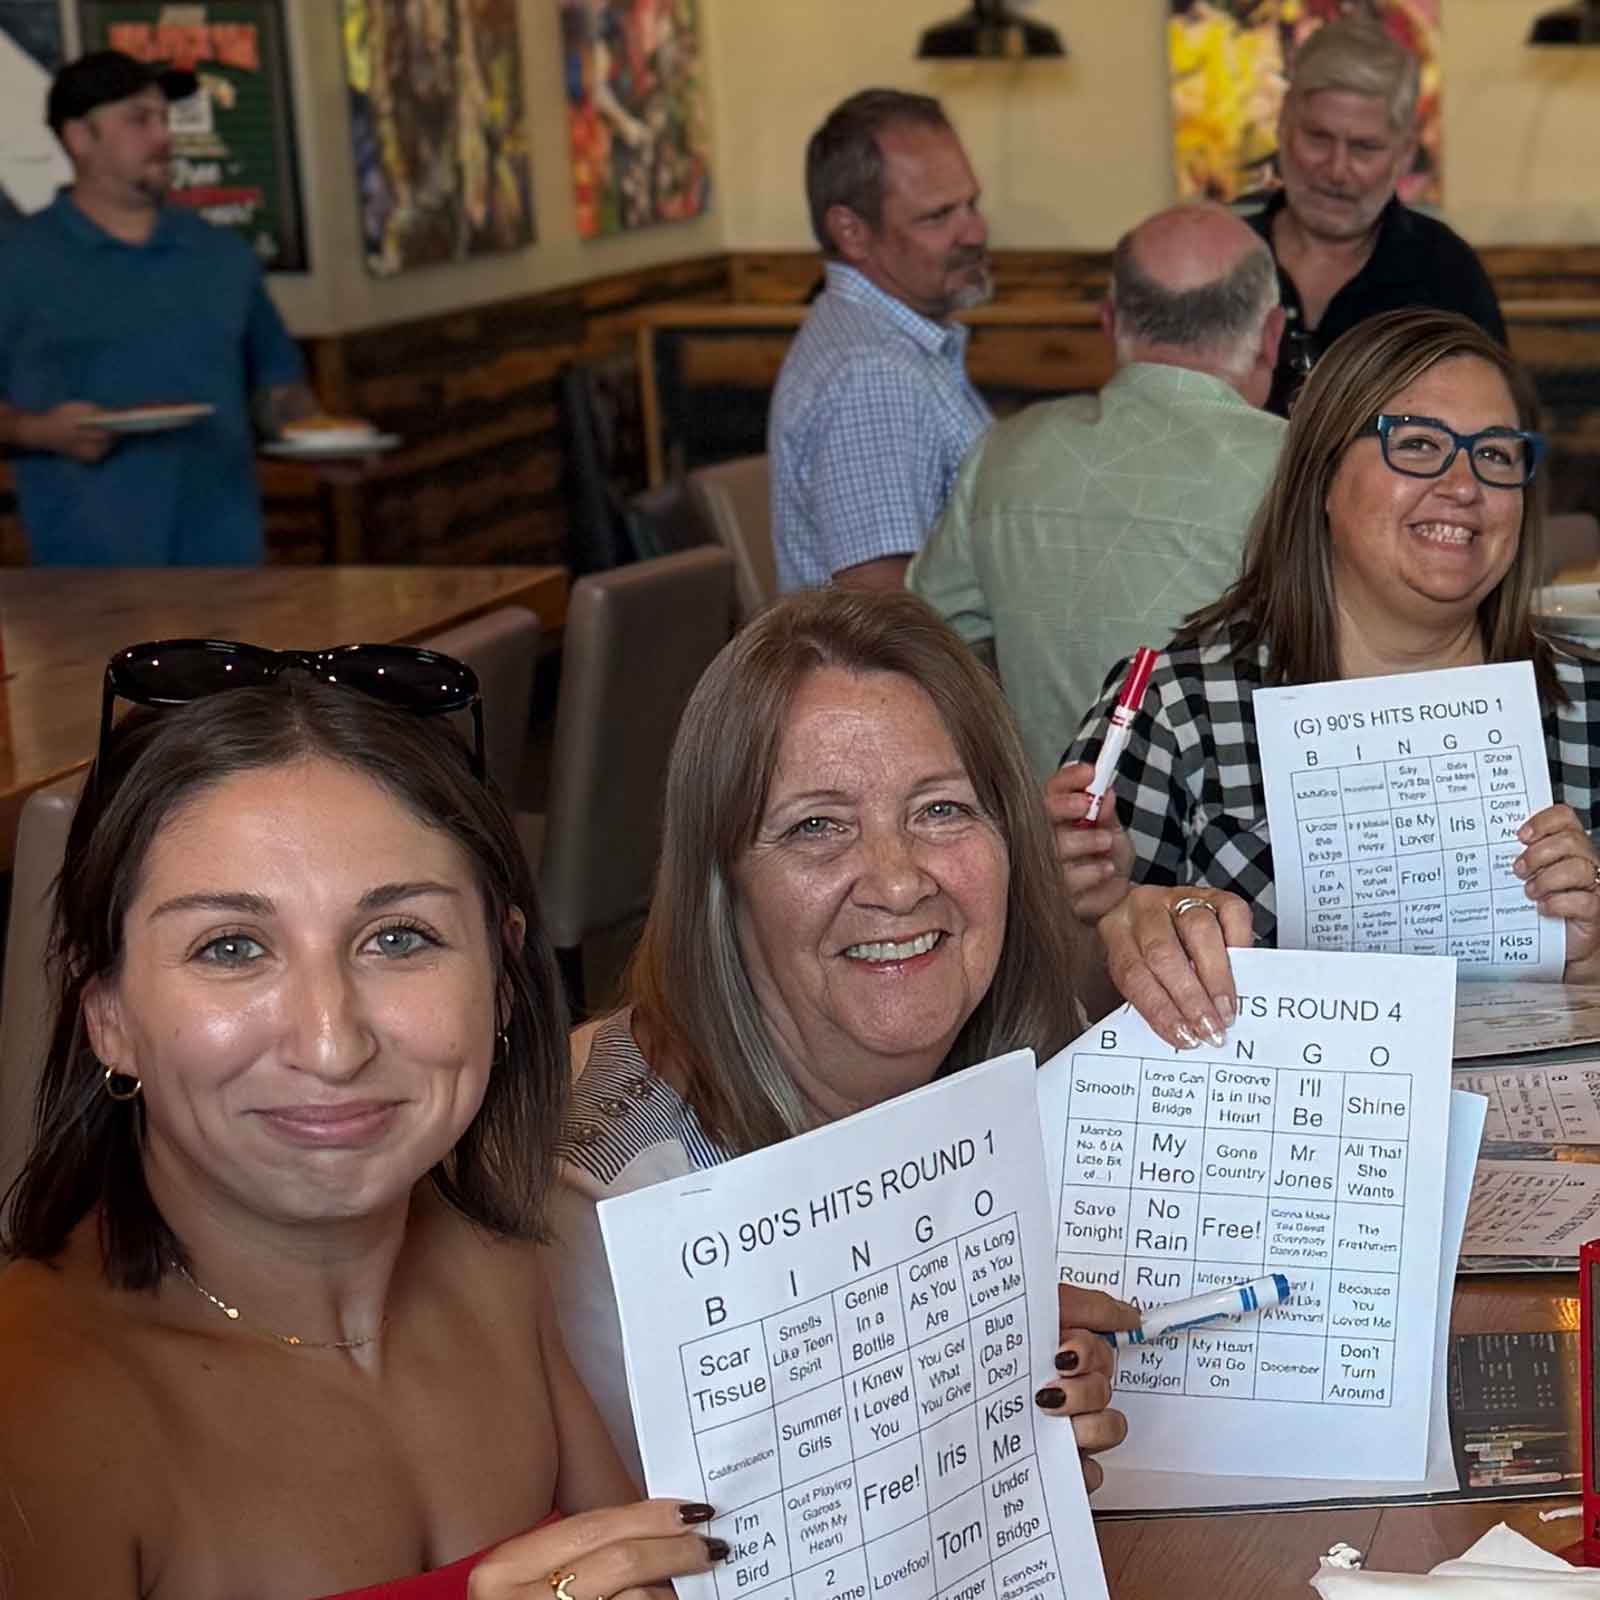 (G) 90'S HITS ROUND 1
B I N G O
Say
You'll Be
There
Baby
One More
Time
Show
Me
Love
Under
the
Bridge
If It Makes
You
Happy
Be My
Lover
Iris
Come
As You
Are
I'm
Like A
Bird
You Get
What
You Give
Free!
Bye
Bye
Bye
Blue
(Da Ba
Dee)
I Knew
I Loved
You
As Long
Kiss
Me
TS ROUND 4
B I N G O
Smooth
Love Can
Build A
Bridge
Groove
is in the
Heart
I'll
Be
Shine
Mambo
No. 5 (A
Little Bit
of...)
My
Hero
Gone
Country
Mr
Jones
All That
She
Wants
Save
Tonight
No
Rain
Free!
Gonna Make
You Sweat
(Everybody
Dance Now)
The
Freshmen
Round
Run
Interst
Because
You
Loved Me
My
Religion
My Heart
Will Go
On
December
Don't
Turn
Around
(G) 90'S HITS ROUND 1
B I N G O
Scar
Tissue
Smells
Like Teen
Spirit
Genie
In a
Bottle
Come
As You
Are
As Long
as You
Love Me
Californication
Summer
Girls
I Knew
I Loved
You
You Get
What
You Give
Blue
(Da Ba
Dee)
I'm
Like A
Bird
Quit Playing
Games
(With My
Heart)
Free!
Iris
Kiss
Me
2
Lovefool
Torn
Under
the
Bridge
Everybody